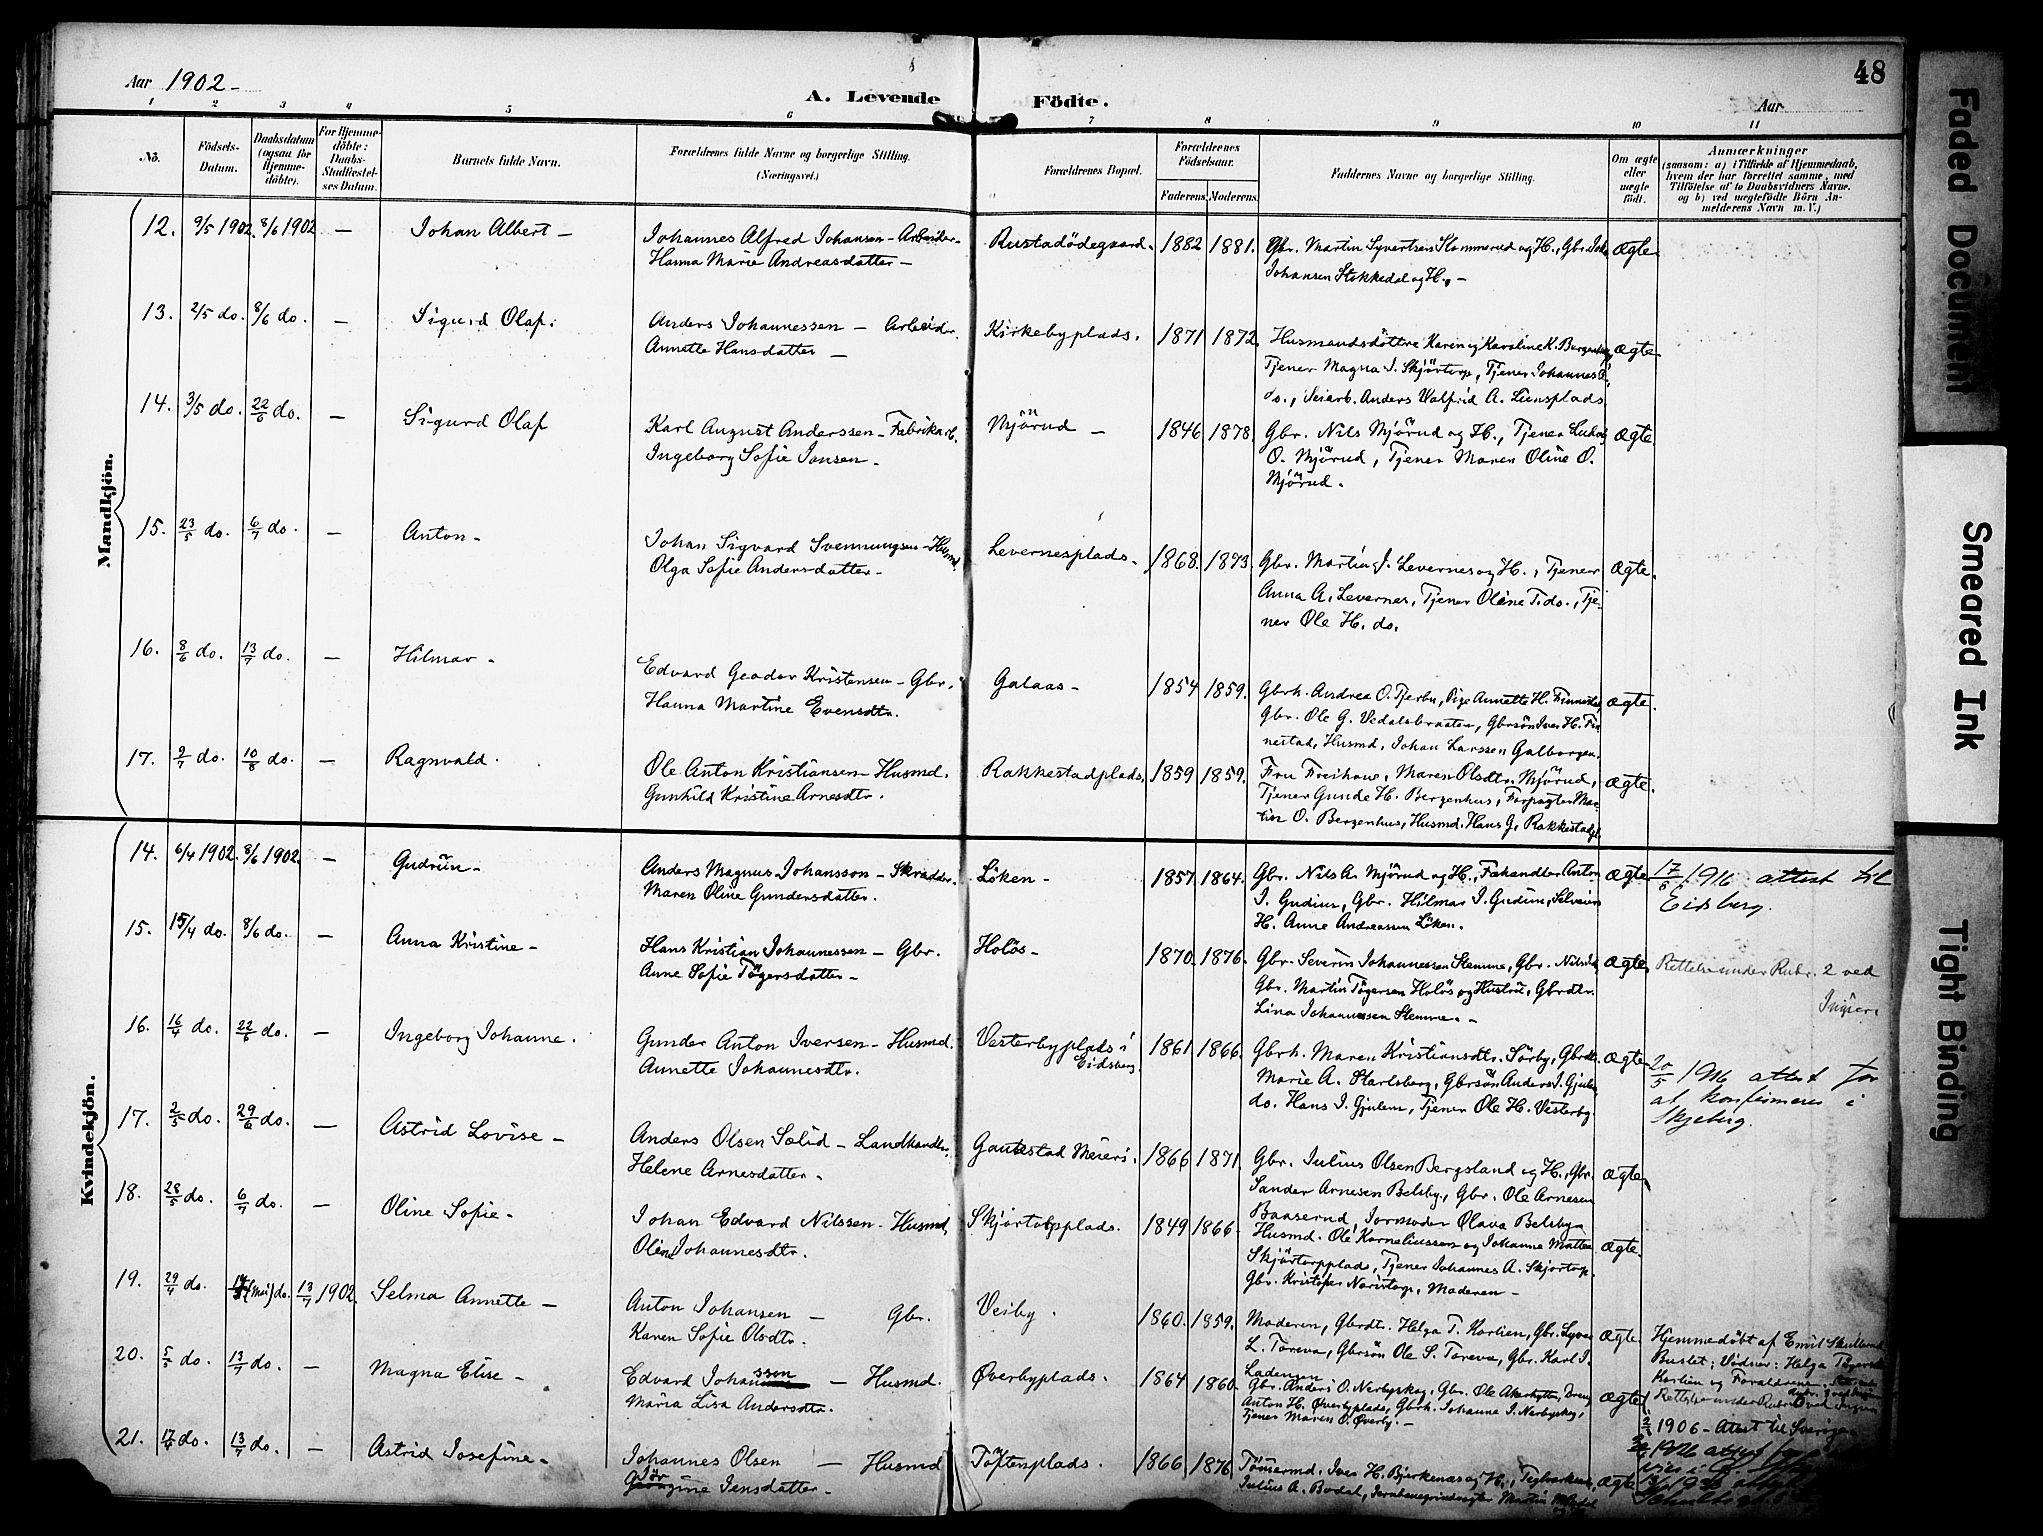 Aar 1902.
A. Levende Födte.
Aar
48
1 2 3 4 5 6 7 8 9 10 11
No.
Födsels-Datum.
Daabsdatum (ogsaa for Hjemmedöbte).
For Hjemmedöbte: Daabs-Stadfæstelses Datum.
Barnets fulde Navn.
Forældrenes fulde Navne og borgerlige Stilling. (Næringsvei.)
Forældrenes Bopæl.
Forældrenes Födselsaar.
Faderens. Moderens.
Faddernes Navne og borgerlige Stilling.
Om ægte eller uægte födt.
Anmærkninger
(saasom: a) i Tilfælde af Hjemmedaab, hvem der har forrettet samme, med Tilföielse af to Daabsvidners Navne. og b) ved uægtefödte Börn Anmelderens Navn m. V.)
Mandkjön.
12. 9/5 1902. 8/6 1902 — Johan Albert — Johannes Alfred Johansen — Arbeider. Rustadödegaard. 1882 1881. Gbr. Martin Syvertsen Slommerud og H., Gbr. Ægte.
Hanna Marie Andreasdatter — Johansen Stikkedal og H. —
13. 2/5 do. 8/6 do. — Sigurd Olaf. Anders Johannessen — Arbeider. Kirkebyplads. 1871 1872. Husmandsdöttre Karen og Karoline K. Ægte
Annette Hansdatter — Tjener Magna J. Skjörtorp, Tjener Johannes
do., Anders Valfrid A. Liensplads.
14. 3/5 do. 22/6 do. — Sigurd Olaf Karl August Anderssen — Fabrikarb. Mjörud — 1846 1878. Gbr. Nils Mjörud og H., Tjener Ægte.
Ingeborg Sofie Jansen. O. Mjörud, Tjener Maren Oline O.
Mjörud.
15. 23/5 do. 6/7 do. — Anton — Johan Sigvard Svenningsen — Husmd. Levernesplads. 1868. 1873. Gbr. Martin J. Levernes og H., Tjener Ægte.
Olga Sofie Andersdatter — Anna A. Levernes, Tjener Oline T. do., Tje-
ner Ole H. do.
16. 8/6 do. 13/7 do. — Hilmar — Edvard Geodor Kristensen — Gbr. Galaas — 1854 1859. Gbrk. Andrea O. Tjerbu, Pige Annette H. Ægte.
Hanna Martine Evensdtr. Gbr. Ole G. Vedalsbraaten, Gbrsön Iver H. Fin-
nestad, Husmd. Johan Larssen Galborgen.
17. 9/7 do. 10/8 do. — Ragnvald. Ole Anton Kristiansen — Husmd. Rakkestadplads. 1859 1859. Fru Freihow, Maren Olsdtr. Mjörud, Ægte.
Gunhild Kristine Arnesdtr. Tjener Gunde H. Bergenhus, Forpagter Mar-
tin O. Bergenhus, Husmd. Hans J. Rakkestadpl.
Kvindekjön.
14. 6/4 1902. 8/6 1902. — Gudrun — Anders Magnus Johansson — Skrædder. Löken — 1857 1864. Gbr. Nils A. Mjörud og H., Fehandler Anton Ægte 17/8 1916 attest til
Maren Oline Gundersdatter. J. Gudim, Gbr. Hilmar J. Gudim, Selveier Eidsberg.
H. Anne Andreassen Löken.
15. 15/4 do. 8/6 do. — Anna Kristine — Hans Kristian Johannessen — Gbr. Holös — 1870. 1876. Gbr. Severin Johannessen Stemme, Gbr. Ægte, Rettelse under Rubr. 2 ved
Anne Sofie Tögersdatter — Gbr. Martin Tögersen Holös og Hustru, Gbrdtr.
Lina Johannessen Stemme. —
16. 16/4 do. 22/6 do. — Ingeborg Johanne. Gunder Anton Iversen — Husmd. Vesterbyplads i Eidsberg. 1861 1866. Gbrk. Maren Kristiansdtr. Sörby, Gbrdtr. Ægte 20/5 1916 attest for
Annette Johannesdtr. Marie A. Karlsborg, Gbrsön Anders J. at konfirmeres i
do. Hans J. Gjulem, Tjener Ole H. Vesterby. Skjeberg.
17. 2/5 do. 29/6 do. — Astrid Lovise — Anders Olsen Solid — Landhandler. Gautestad Meieri. 1866 1871. Gbr. Julius Olsen Bergsland og H., Gbr. Ægte.
Helene Arnesdatter. Sander Arnesen Belsby, Gbr. Ole Arnesen
Baaserud, Jormoder Olava Belsby
18. 28/5 do. 6/7 do. — Oline Sofie. Johan Edvard Nilssen — Husmd. Skjörtorpplads. 1849 1866. Husmd. Ole Korneliussen og Johanne Mattea Ægte.
Oline Johannesdtr. Skjörtorpplads, Tjener Johannes A. Skjortorp.
Gbr. Kristofer Moderen —
19. 29/4 do. (Mai) do. 13/7 1902. Selma Annette — Anton Johansen — Gbr. Veiby. 1860. 1859. Moderen, Gbrdtr. Helga T. Kortien, Gbr. Ægte. Hjemmedöbt af Emil
Karen Sofie Olsdtr. L. Toreva, Gbrsön Ole S. Toreva, Gbr. Karl J. Vidner: Helga
Kortien og Forældrene.
20. 5/5 do. 13/7 do. — Magna Elise — Edvard Johanssen — Husmd. Överbyplads. 1864 1860. Gbr. Anders O. Nerbyskog, Gbr. Ole Ægte Rettelse under Rubr.
Maria Lisa Andersdtr. Anton H. Överbyplads, Gbrk. Johanne J. Nerbyskog, 1906 — Attest til Sverige.
Tjener Maren O. Överby. —
21. 17/6 do. 13/7 do. — Astrid Josefine. Johannes Olsen — Husmd Töftenplads. 1866 1876. Tömermd. Iver H. Bjerkenæs og H., Ægte 1926 attest
Jörgine Jensdatter — Julius A. Bodal, Jernbanegrindvogter Martin
Faded Document
Smeared Ink
Tight Binding